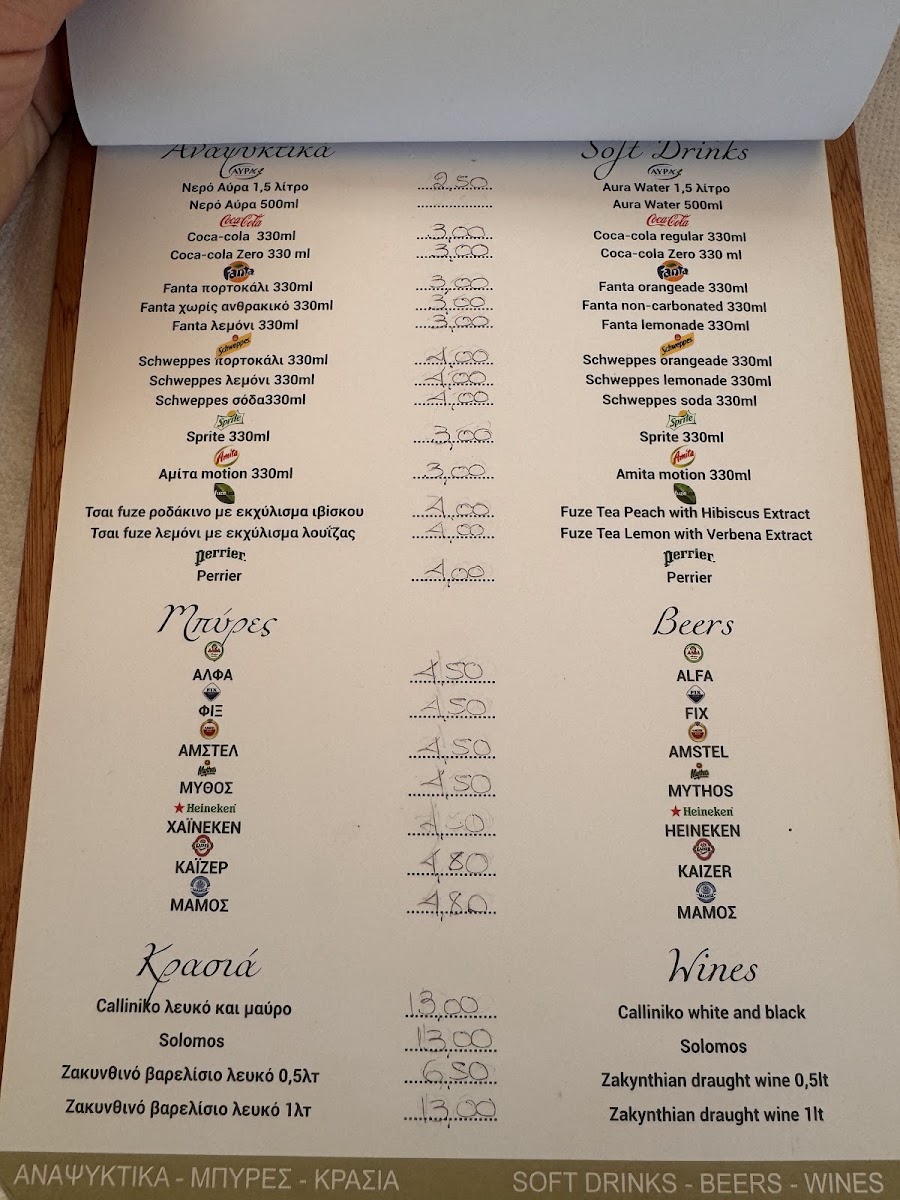 Αναψυκτικά Soft Drinks
ΑΥΡΑ ΑΥΡΑ
Νερό Αύρα 1,5 λίτρο 2,50 Aura Water 1,5 λίτρο
Νερό Αύρα 500ml Aura Water 500ml
Coca-Cola Coca-Cola
Coca-cola 330ml 3,00 Coca-cola regular 330ml
Coca-cola Zero 330 ml 3,00 Coca-cola Zero 330 ml
Fanta Fanta
Fanta πορτοκάλι 330ml 3,00 Fanta orangeade 330ml
Fanta χωρίς ανθρακικό 330ml 3,00 Fanta non-carbonated 330ml
Fanta λεμόνι 330ml 3,00 Fanta lemonade 330ml
Schweppes Schweppes
Schweppes πορτοκάλι 330ml 4,00 Schweppes orangeade 330ml
Schweppes λεμόνι 330ml 4,00 Schweppes lemonade 330ml
Schweppes σόδα330ml 4,00 Schweppes soda 330ml
Sprite Sprite
Sprite 330ml 3,00 Sprite 330ml
Amita Amita
Αμίτα motion 330ml 3,00 Amita motion 330ml
fuze fuze
Τσαι fuze ροδάκινο με εκχύλισμα ιβίσκου 4,00 Fuze Tea Peach with Hibiscus Extract
Τσαι fuze λεμόνι με εκχύλισμα λουΐζας 4,00 Fuze Tea Lemon with Verbena Extract
perrier perrier
Perrier 4,00 Perrier
Μπύρες Beers
ΑΛΦΑ 4,50 ALFA
FIX FIX
ΦΙΞ 4,50 FIX
ΑΜΣΤΕΛ 4,50 AMSTEL
Mythos Mythos
ΜΥΘΟΣ 4,50 MYTHOS
Heineken Heineken
ΧΑΪΝΕΚΕΝ 4,50 HEINEKEN
ΚΑΪΖΕΡ 4,80 KAIZER
ΜΑΜΟΣ 4,80 ΜΑΜΟΣ
Κρασιά Wines
Calliniko λευκό και μαύρο 13,00 Calliniko white and black
Solomos 13,00 Solomos
Ζακυνθινό βαρελίσιο λευκό 0,5λτ 6,50 Zakynthian draught wine 0,5lt
Ζακυνθινό βαρελίσιο λευκό 1λτ 13,00 Zakynthian draught wine 1lt
ΑΝΑΨΥΚΤΙΚΑ - ΜΠΥΡΕΣ - ΚΡΑΣΙΑ SOFT DRINKS - BEERS - WINES